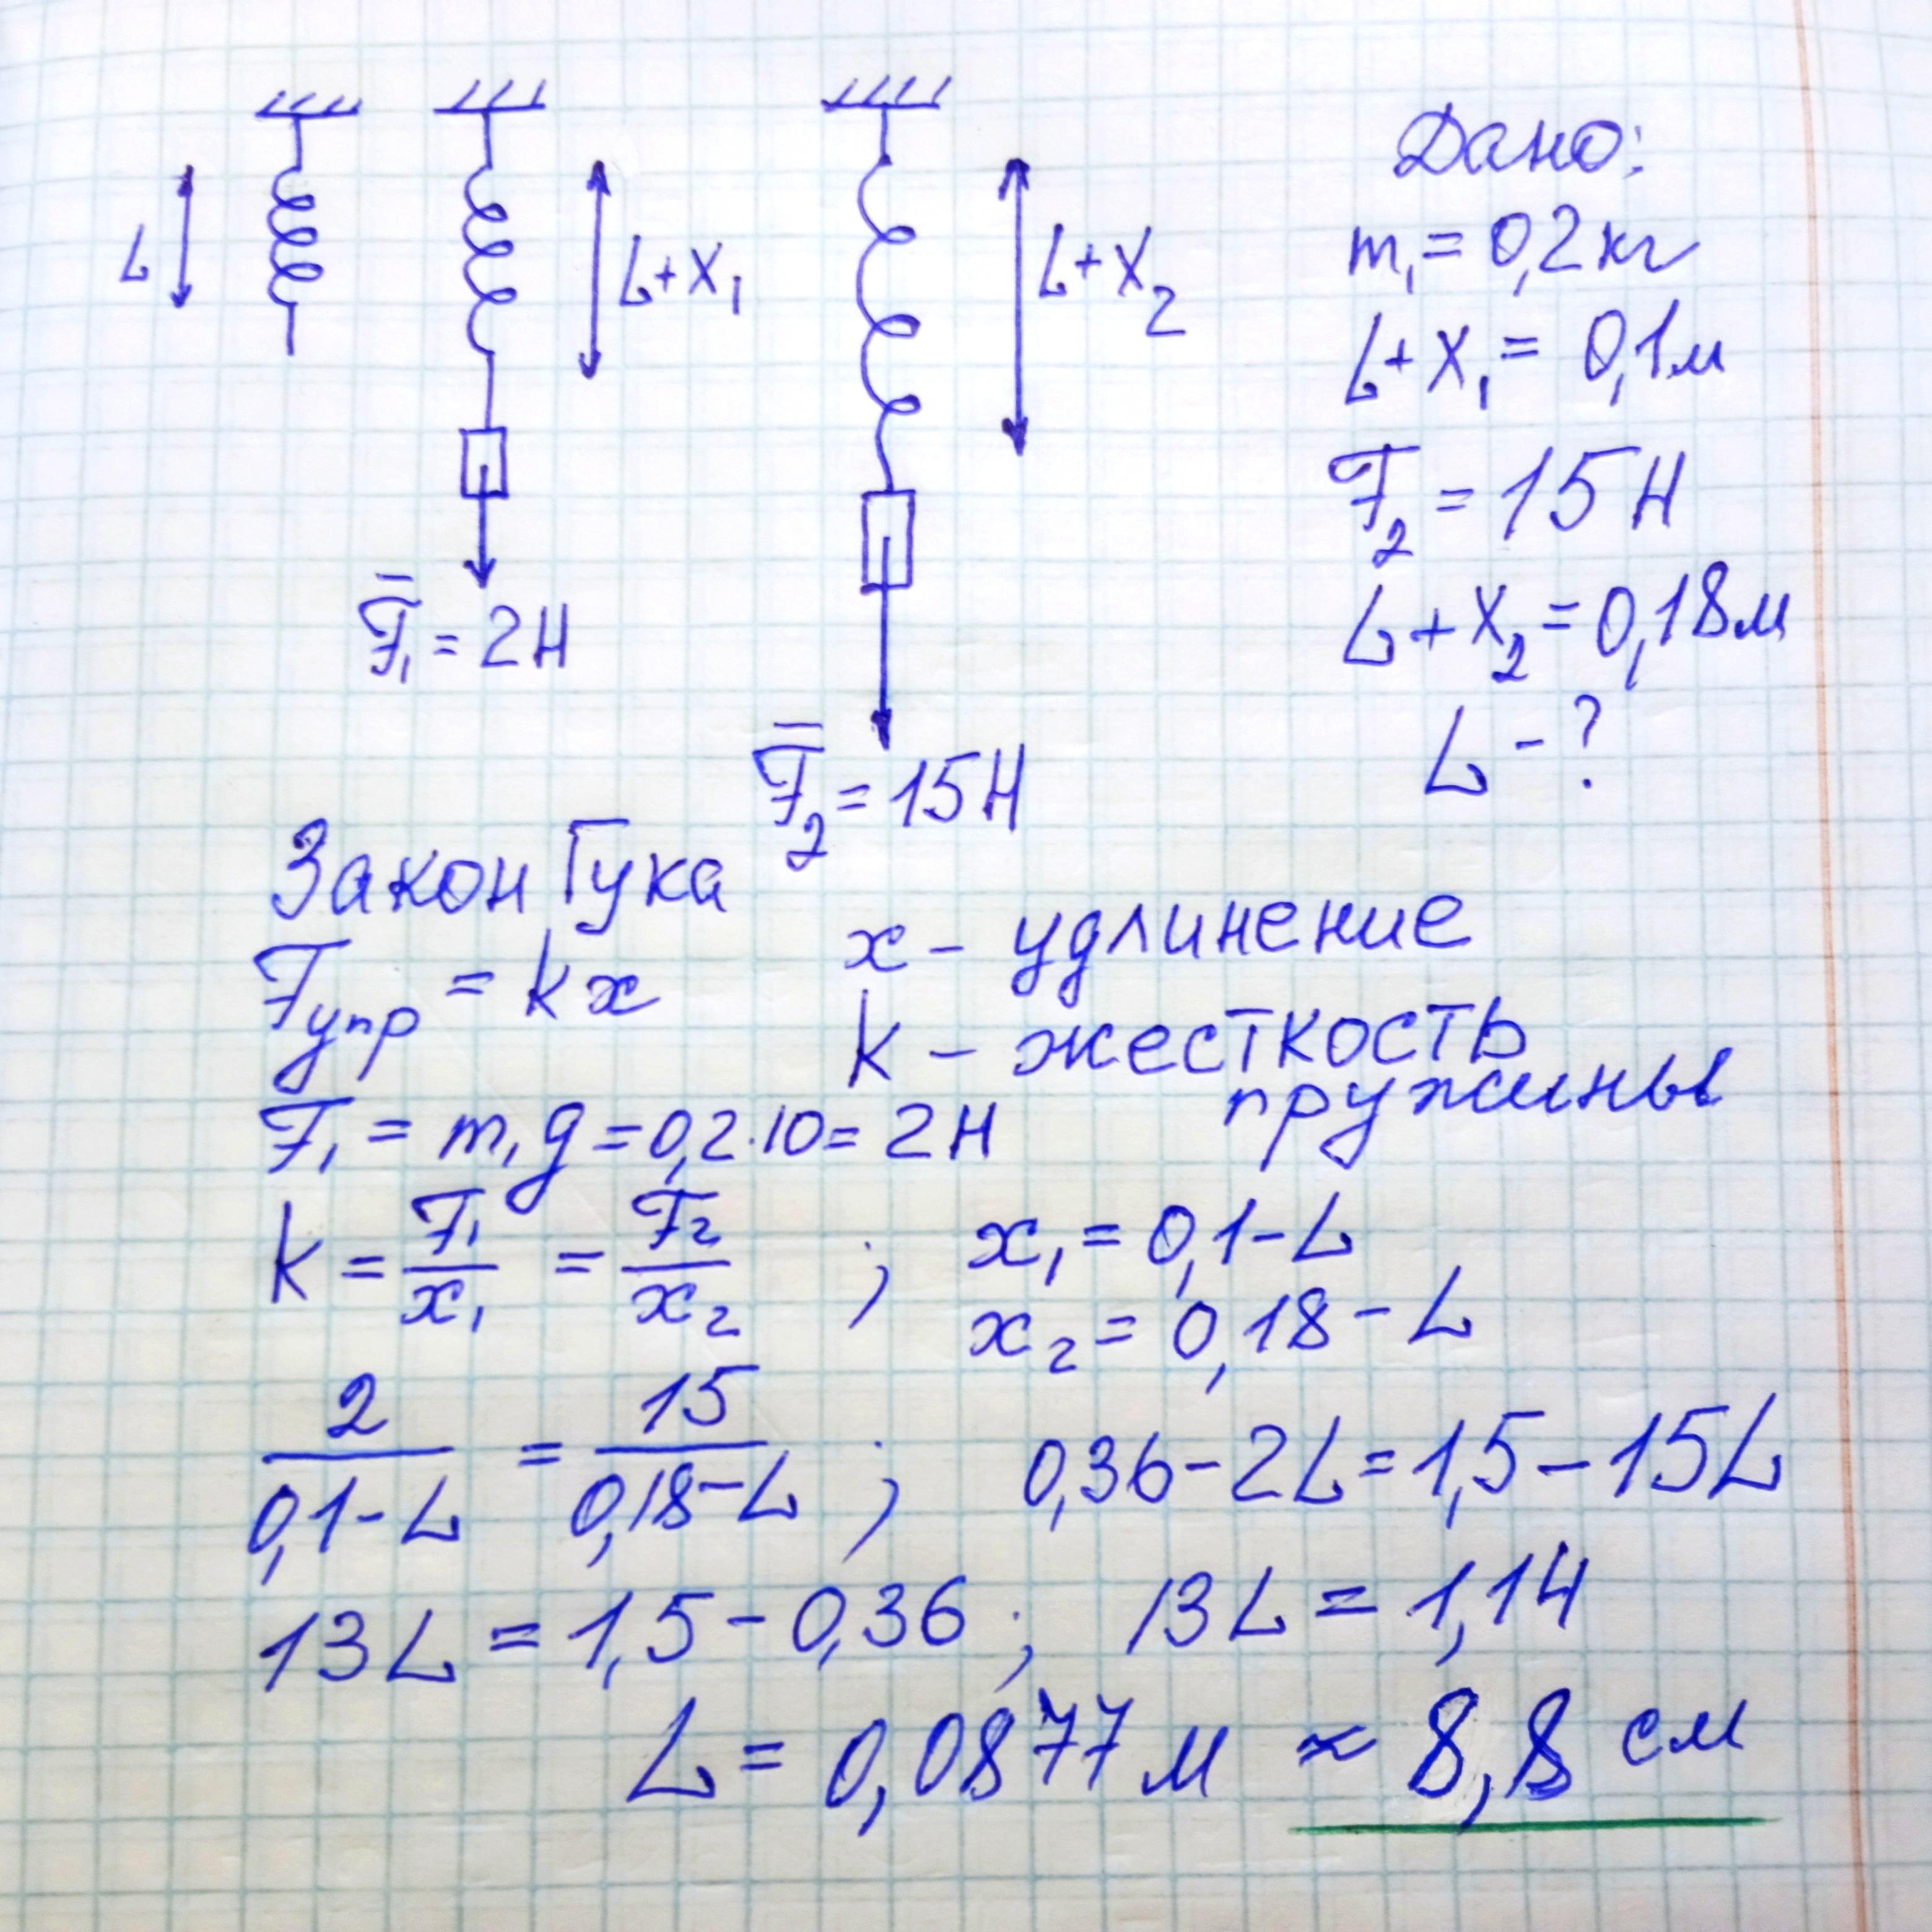 L
L+x₁
L+x₂
F̄₁ = 2Н
F̄₂ = 15Н
Дано:
m₁ = 0,2 кг
L+x₁ = 0,1м
F₂ = 15 Н
L+x₂ = 0,18м
L - ?
Закон Гука
Fупр = kx
x - удлинение
k - жесткость
пружины
F₁ = m₁g = 0,2·10 = 2Н
k = F₁/x₁ = F₂/x₂ ; x₁ = 0,1-L
x₂ = 0,18-L
2/(0,1-L) = 15/(0,18-L) ; 0,36-2L = 1,5-15L
13L = 1,5-0,36 ; 13L = 1,14
L = 0,0877 м ≈ 8,8 см